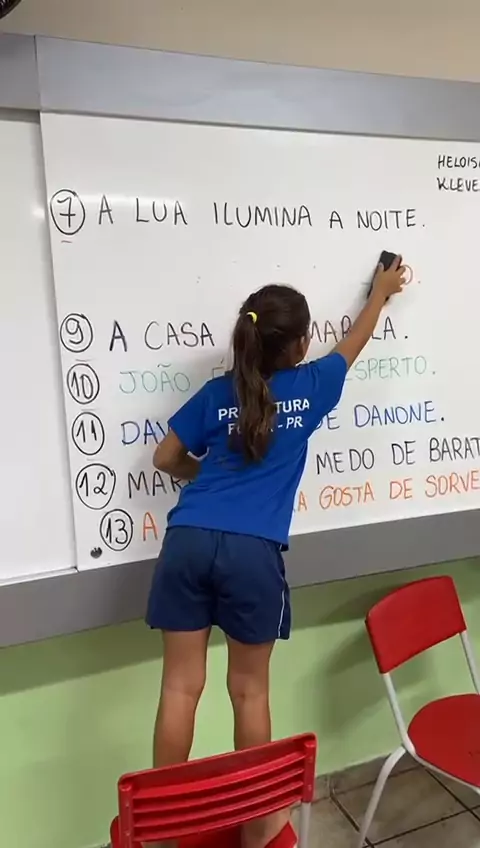 HELOIS
KLEVE
7 A LUA ILUMINA A NOITE.
9 A CASA AMARELA.
10 JOÃO É ESPERTO.
11 DAV DE DANONE.
12 MAR MEDO DE BARAT
13 A GOSTA DE SORVE
PREFEITURA
- PR